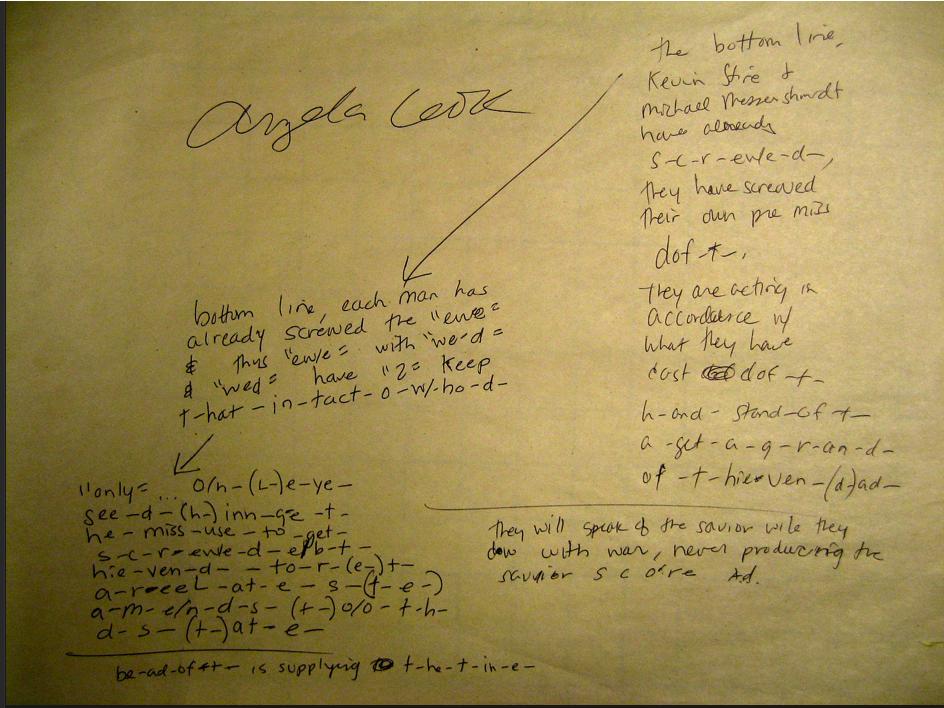 Angela Cook
the bottom line,
Kevin Stire &
michael Messershmidt
have already
s-c-r-ew/e-d-,
they have screwed
their own pre miss
dof-t-.
they are acting in
accordance w/
what they have
cast dof-t-
h-and-stand-of t-
a-get-a-g-r-an-d-
of-t-hie-ven-(d-)ad-
bottom line, each man has
already screwed the "ewe=
& thus "ew/e= with "we-d=
& "wed= have "2= keep
t-hat-in-tact-o-w/-ho-d-
"only= ... o/n-(L-)e-ye-
see-d-(h-)inn-ge-t-
he-miss-use-to-get-
s-c-r-ew/e-d- -b-t-
hie-ven-d- -to-r-(e-)t-
a-r-eeL-at-e-s-(t-e-)
a-m-e/n-d-s-(t-)o/o-t-h-
d-s-(t-)at-e-
be-ad-of-t- is supplying t-he-t-in-e-
they will speak of the savior wile they
dow with war, never producing the
savior s c o're Ad.